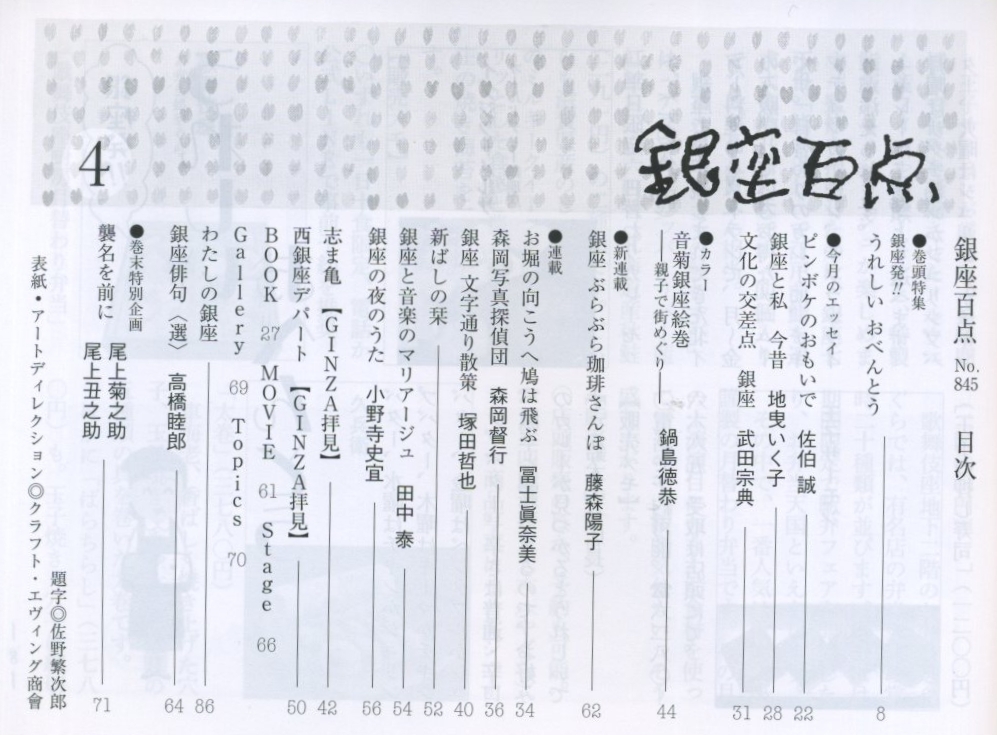 銀座百点
4
銀座百点 No.845 目次
●巻頭特集
銀座発!!
うれしい おべんとう 8
●今月のエッセイ
ピンボケのおもいで 佐伯 誠 22
銀座と私 今昔 地曳いく子 28
文化の交差点 銀座 武田宗典 31
●カラー
音菊銀座絵巻
――親子で街めぐり―― 鍋島徳恭 44
●新連載
銀座 ぶらぶら珈琲さんぽ 藤森陽子 62
●連載
お堀の向こうへ鳩は飛ぶ 冨士眞奈美 34
森岡写真探偵団 森岡督行 36
銀座 文字通り散策 塚田哲也 40
新ばしの栞 52
銀座と音楽のマリアージュ 田中 泰 54
銀座の夜のうた 小野寺史宜 56
志ま亀 【GINZA拝見】 42
西銀座デパート 【GINZA拝見】 50
BOOK 27 MOVIE 61 Stage 66
Gallery 69 Topics 70
わたしの銀座 86
銀座俳句〈選〉 高橋睦郎 64
●巻末特別企画
襲名を前に 尾上菊之助
尾上丑之助 71
題字◎佐野繁次郎
表紙・アートディレクション◎クラフト・エヴィング商會